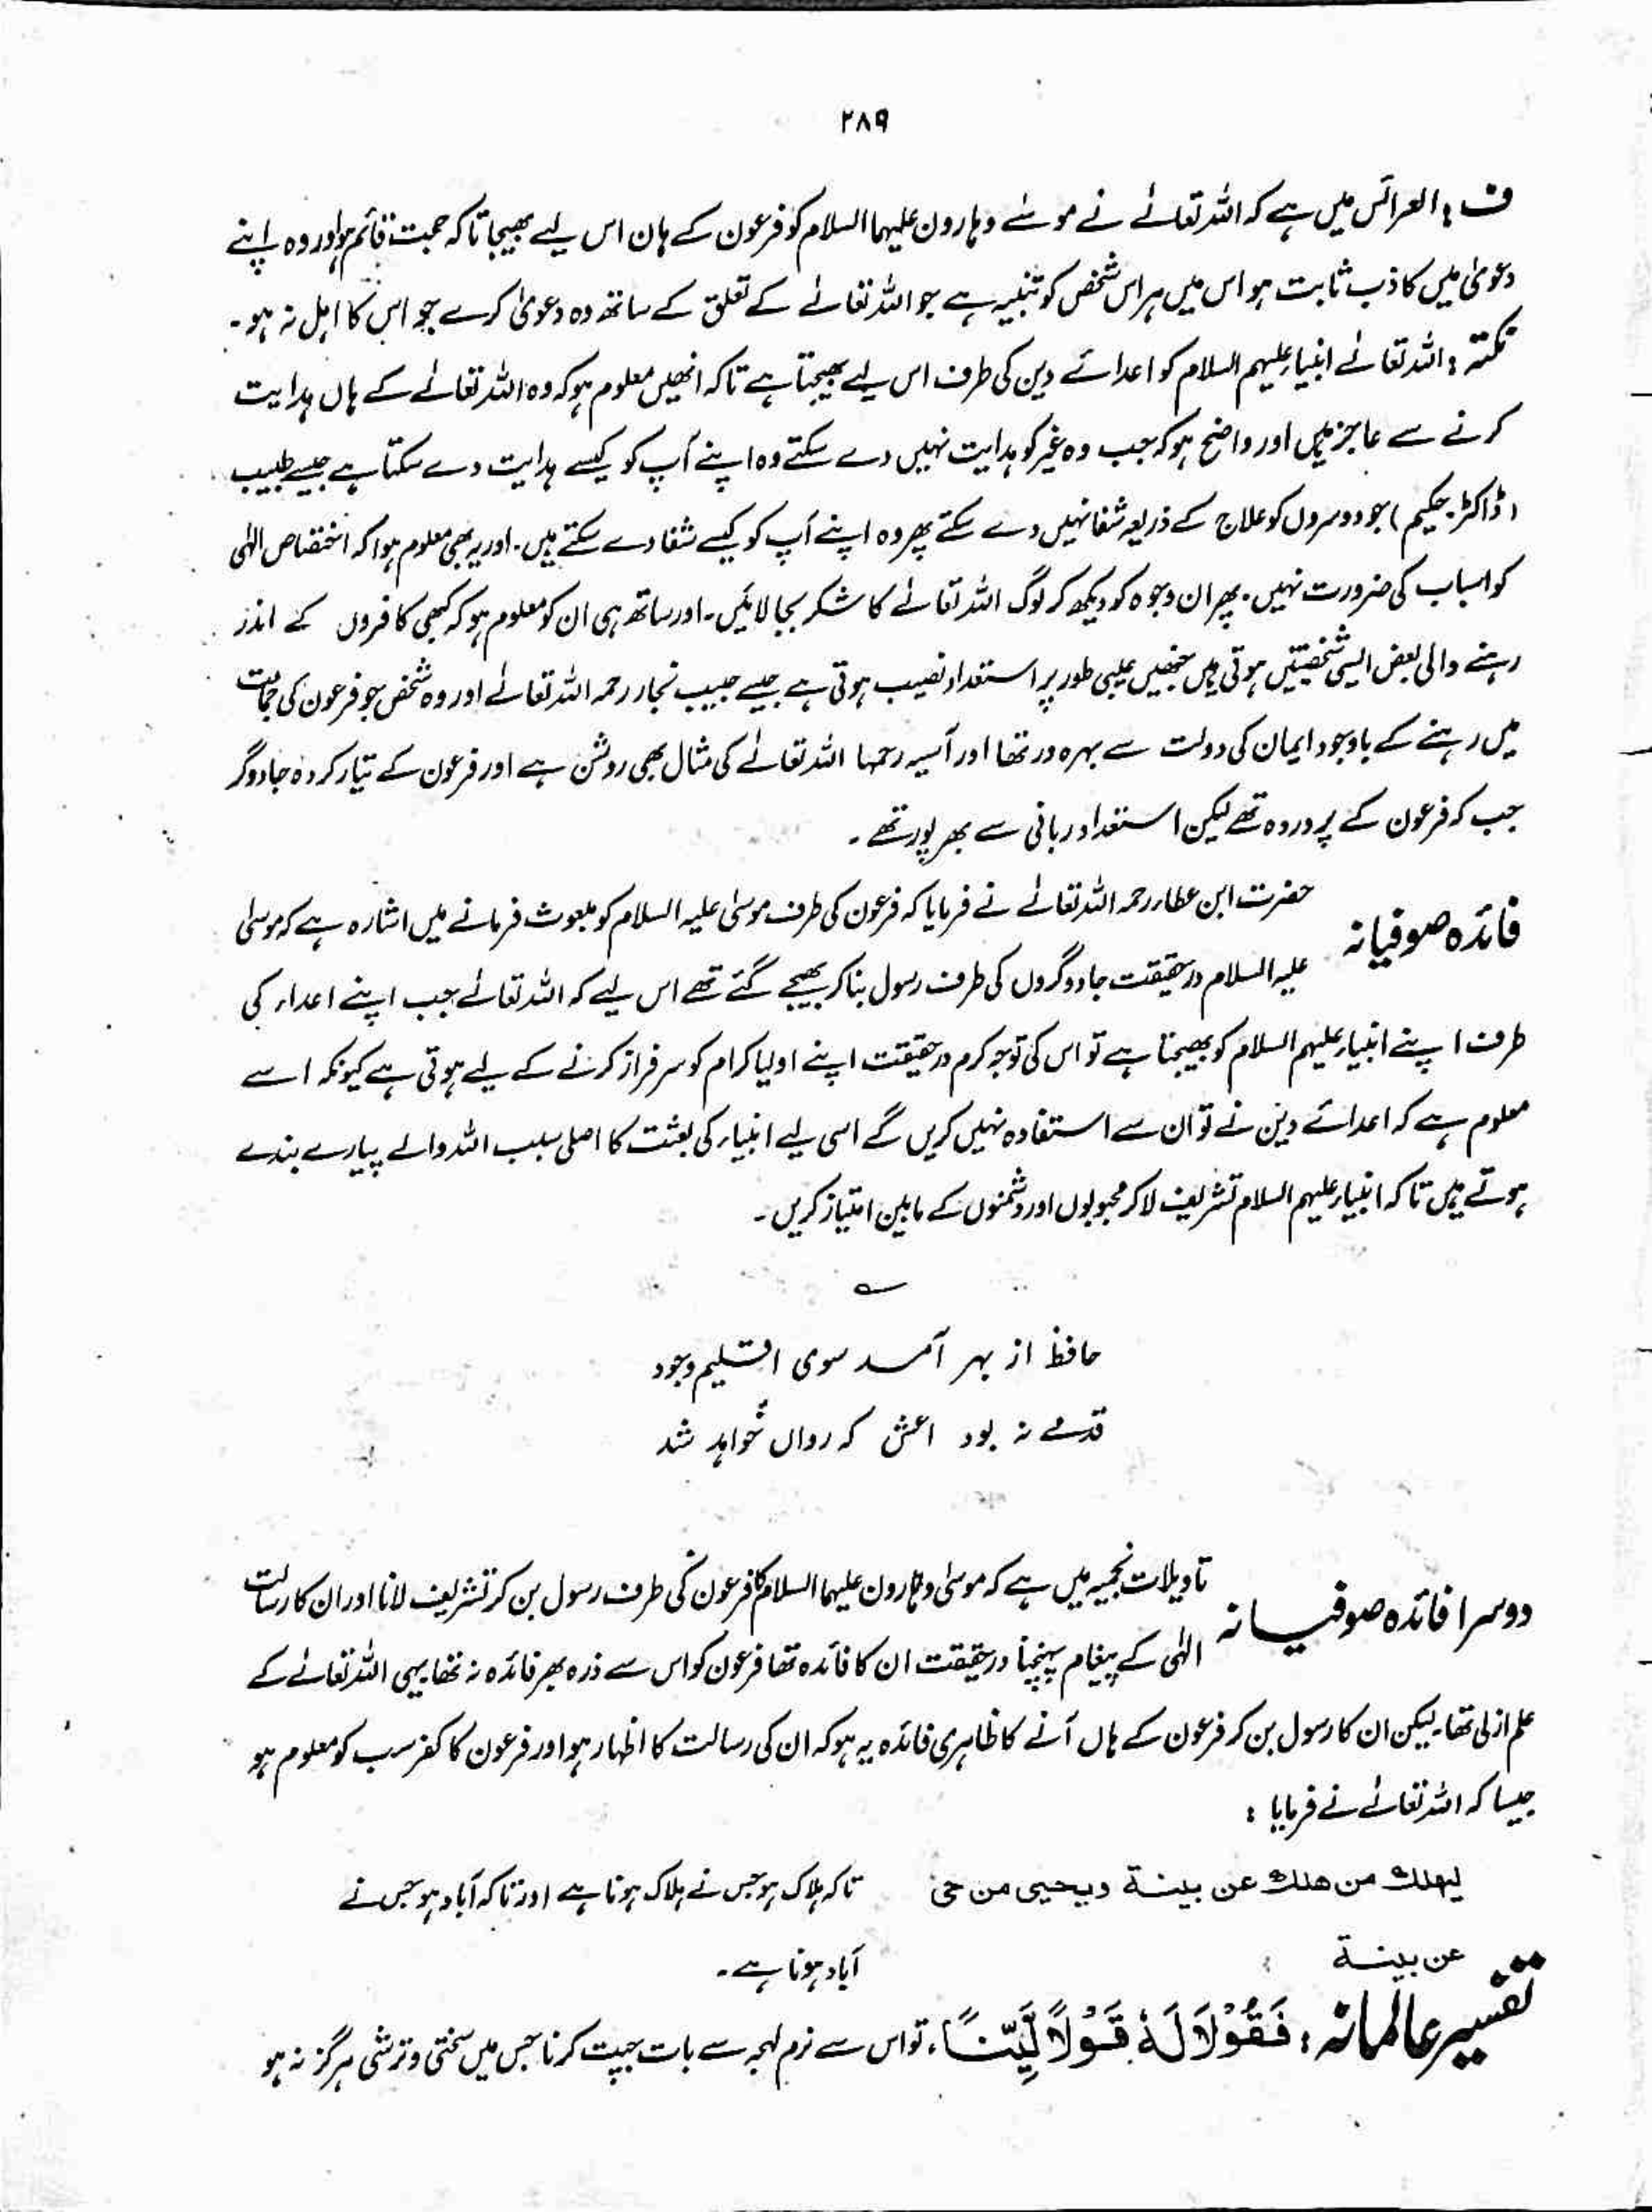 ۲۸۹
ف: العرائس میں ہے کہ اللہ تعالےٰ نے موسےٰ وہارون علیہما السلام کو فرعون کے ہاں اس لیے بھیجا تا کہ حجت قائم ہو اور وہ اپنے
دعویٰ میں کاذب ثابت ہو اس میں ہر اس شخص کو تنبیہ ہے جو اللہ تعالےٰ کے تعلق کے ساتھ وہ دعویٰ کرے جو اس کا اہل نہ ہو۔
نکتہ: اللہ تعالےٰ انبیاء علیہم السلام کو اعدائے دین کی طرف اس لیے بھیجتا ہے تا کہ انھیں معلوم ہو کہ وہ اللہ تعالےٰ کے ہاں ہدایت
کرنے سے عاجز ہیں اور واضح ہو کہ جب وہ غیر کو ہدایت نہیں دے سکتے وہ اپنے آپ کو کیسے ہدایت دے سکتا ہے جیسے طبیب
(ڈاکٹر۔حکیم) جو دوسروں کو علاج کے ذریعہ شفا نہیں دے سکتے پھر وہ اپنے آپ کو کیسے شفا دے سکتے ہیں۔ اور یہ بھی معلوم ہوا کہ اختصاص الٰہی
کو اسباب کی ضرورت نہیں۔ پھر ان وجوہ کو دیکھ کر لوگ اللہ تعالےٰ کا شکر بجا لائیں۔ اور ساتھ ہی ان کو معلوم ہو کہ کبھی کافروں کے اندر
رہنے والی بعض ایسی شخصیتیں ہوتی ہیں جنھیں غیبی طور پر استعداد نصیب ہوتی ہے جیسے حبیب نجار رحمہ اللہ تعالےٰ اور وہ شخص جو فرعون کی جماعت
میں رہنے کے باوجود ایمان کی دولت سے بہرہ ور تھا اور آسیہ رحمہا اللہ تعالےٰ کی مثال بھی روشن ہے اور فرعون کے تیار کردہ جادوگر
جب کہ فرعون کے پروردہ تھے لیکن استعداد ربانی سے بھر پور تھے۔
فائدہ صوفیانہ حضرت ابن عطاء رحمہ اللہ تعالےٰ نے فرمایا کہ فرعون کی طرف موسیٰ علیہ السلام کو مبعوث فرمانے میں اشارہ ہے کہ موسیٰ
علیہ السلام درحقیقت جادوگروں کی طرف رسول بنا کر بھیجے گئے تھے اس لیے کہ اللہ تعالےٰ جب اپنے اعداء کی
طرف اپنے انبیاء علیہم السلام کو بھیجتا ہے تو اس کی توجہ کرم درحقیقت اپنے اولیا کرام کو سرفراز کرنے کے لیے ہوتی ہے کیونکہ اسے
معلوم ہے کہ اعدائے دین نے تو ان سے استفادہ نہیں کریں گے اسی لیے انبیاء کی بعثت کا اصلی سبب اللہ والے پیارے بندے
ہوتے ہیں تا کہ انبیاء علیہم السلام تشریف لا کر محبوبوں اور دشمنوں کے مابین امتیاز کریں۔
؎
حافظ از بہر آمد سوی اقلیم وجود
قدمے نہ بود اعش کہ رواں خواہد شد
دوسرا فائدہ صوفیانہ تاویلات نجمیہ میں ہے کہ موسیٰ وہارون علیہما السلام کا فرعون کی طرف رسول بن کر تشریف لانا اور ان کا رسالت
الٰہی کے پیغام پہنچانا درحقیقت ان کا فائدہ تھا فرعون کو اس سے ذرہ بھر فائدہ نہ تھا یہی اللہ تعالےٰ کے
علم ازلی تھا۔ لیکن ان کا رسول بن کر فرعون کے ہاں آنے کا ظاہری فائدہ یہ ہو کہ ان کی رسالت کا اظہار ہو اور فرعون کا کفر سب کو معلوم ہو
جیسا کہ اللہ تعالےٰ نے فرمایا:
لیهلك من هلك عن بینة ویحیی من حیّ تا کہ ہلاک ہو جس نے ہلاک ہونا ہے اور تا کہ آباد ہو جس نے
عن بینة آباد ہونا ہے۔
تفسیر عالمانہ: فَقُوْلَا لَهٗ قَوْلًا لَّیِّنًا، تو اس سے نرم لہجہ سے بات چیت کرنا جس میں سختی و ترشی ہرگز نہ ہو